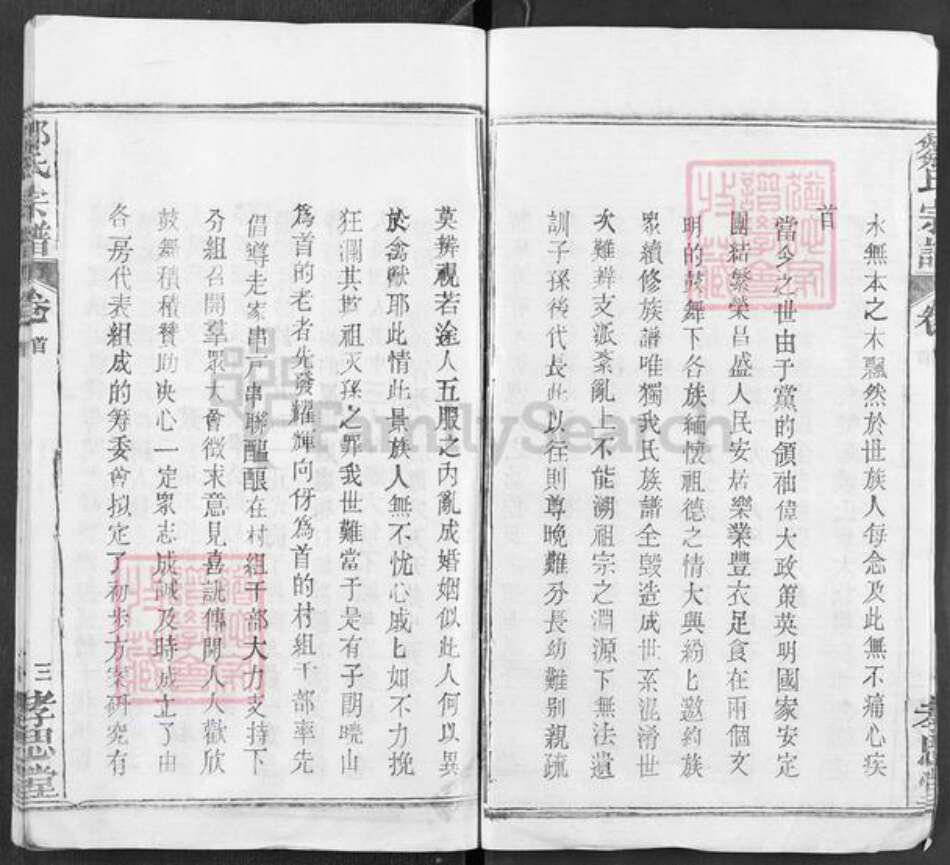 水無本之木飄然於世族人每念及此無不痛心疾
首
當今之世由于黨的領袖偉大政策英明國家安定
團結繁榮昌盛人民安居樂業豐衣足食在兩個文
明的鼓舞下各族緬懷祖德之情大興紛匕邀約族
眾續修族譜唯獨我氏族譜全毀造成世系混淆世
次難辨支派紊亂上不能溯祖宗之淵源下無法遺
訓子孫後代長此以往則尊晚難分長幼難别親疏
鄒氏宗譜
卷首
孝思堂
莫辨視若途人五服之内亂成婚姻似此人何以異
於禽獸耶此情此景族人無不忧心戚匕如不力挽
狂瀾其欺祖灭孫之罪我世難當于是有子朗曉山
為首的老者先發耀輝向伢為首的村組干部率先
倡導走家串戶串聯醞釀在村組干部大力支持下
分組召開羣眾大會徵求意見喜訊傳開人人歡欣
鼓舞積積贊助决心一定眾志成誠及時成立了由
各房代表組成的筹委會拟定了初步方案研究有
鄒氏宗譜
卷首
三
孝思堂
FamilySearch